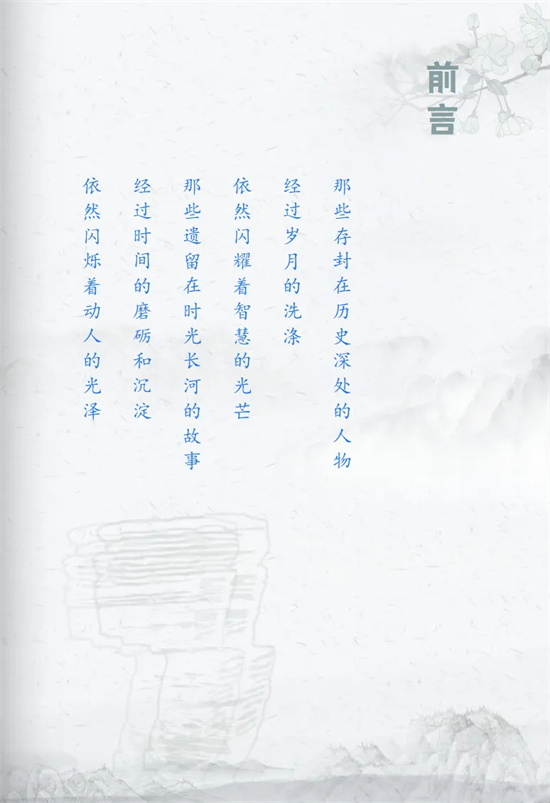 前言
那些存封在历史深处的人物
经过岁月的洗涤
依然闪耀着智慧的光芒
那些遗留在时光长河的故事
经过时间的磨砺和沉淀
依然闪烁着动人的光泽